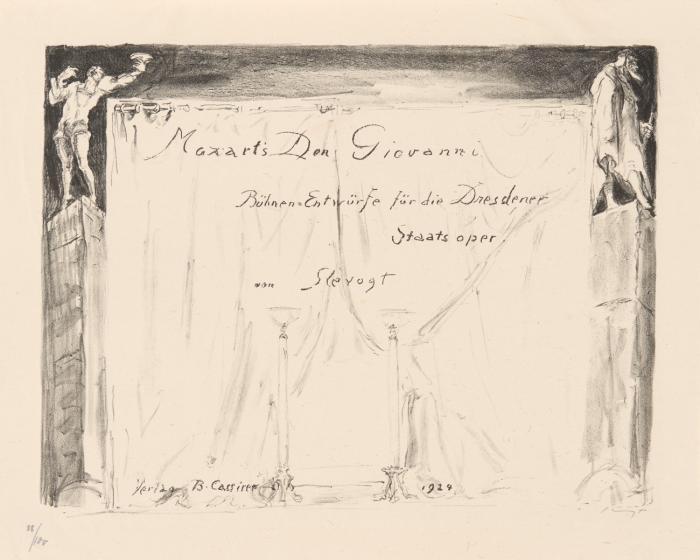 Mozarts Don Giovanni
Bühnen=Entwürfe für die Dresdener
Staats oper.
von Slevogt
Verlag B. Cassirer 1924
/100